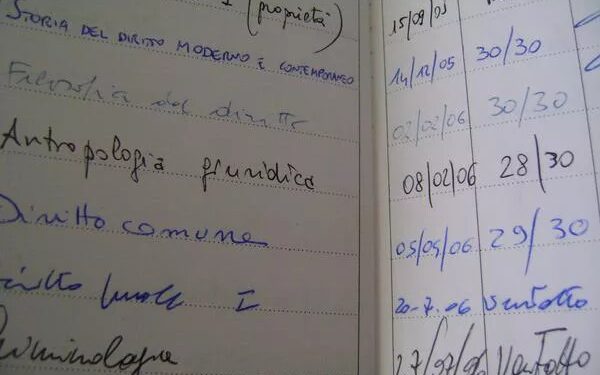 I (proprietà) 15/09/05
STORIA DEL DIRITTO MODERNO E CONTEMPORANEO 14/12/05 30/30
Filosofia del diritto 02/02/06 30/30
Antropologia giuridica 08/02/06 28/30
Diritto comune 05/05/06 29/30
I 20-7-06 Ventotto
Criminologia 27/07/06 Ventotto